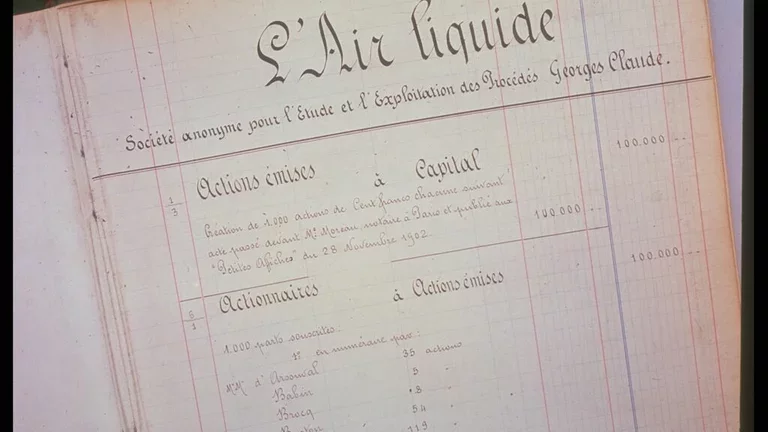 L'Air liquide
Société anonyme pour l'Etude et l'Exploitation des Procédés Georges Claude.
1/3 Actions émises à Capital 100.000 ..
Création de 1.000 actions de Cent francs chacune suivant
acte passé devant Me Moreau, notaire à Paris et publié aux
"Petites Affiches" du 28 Novembre 1902. 100.000 ..
6/1 Actionnaires à Actions émises 100.000 ..
1.000 parts souscrites:
1º en numéraire par:
MM. d'Arsonval 35 actions
Babin 5 "
Brocq 8 "
54 "
119